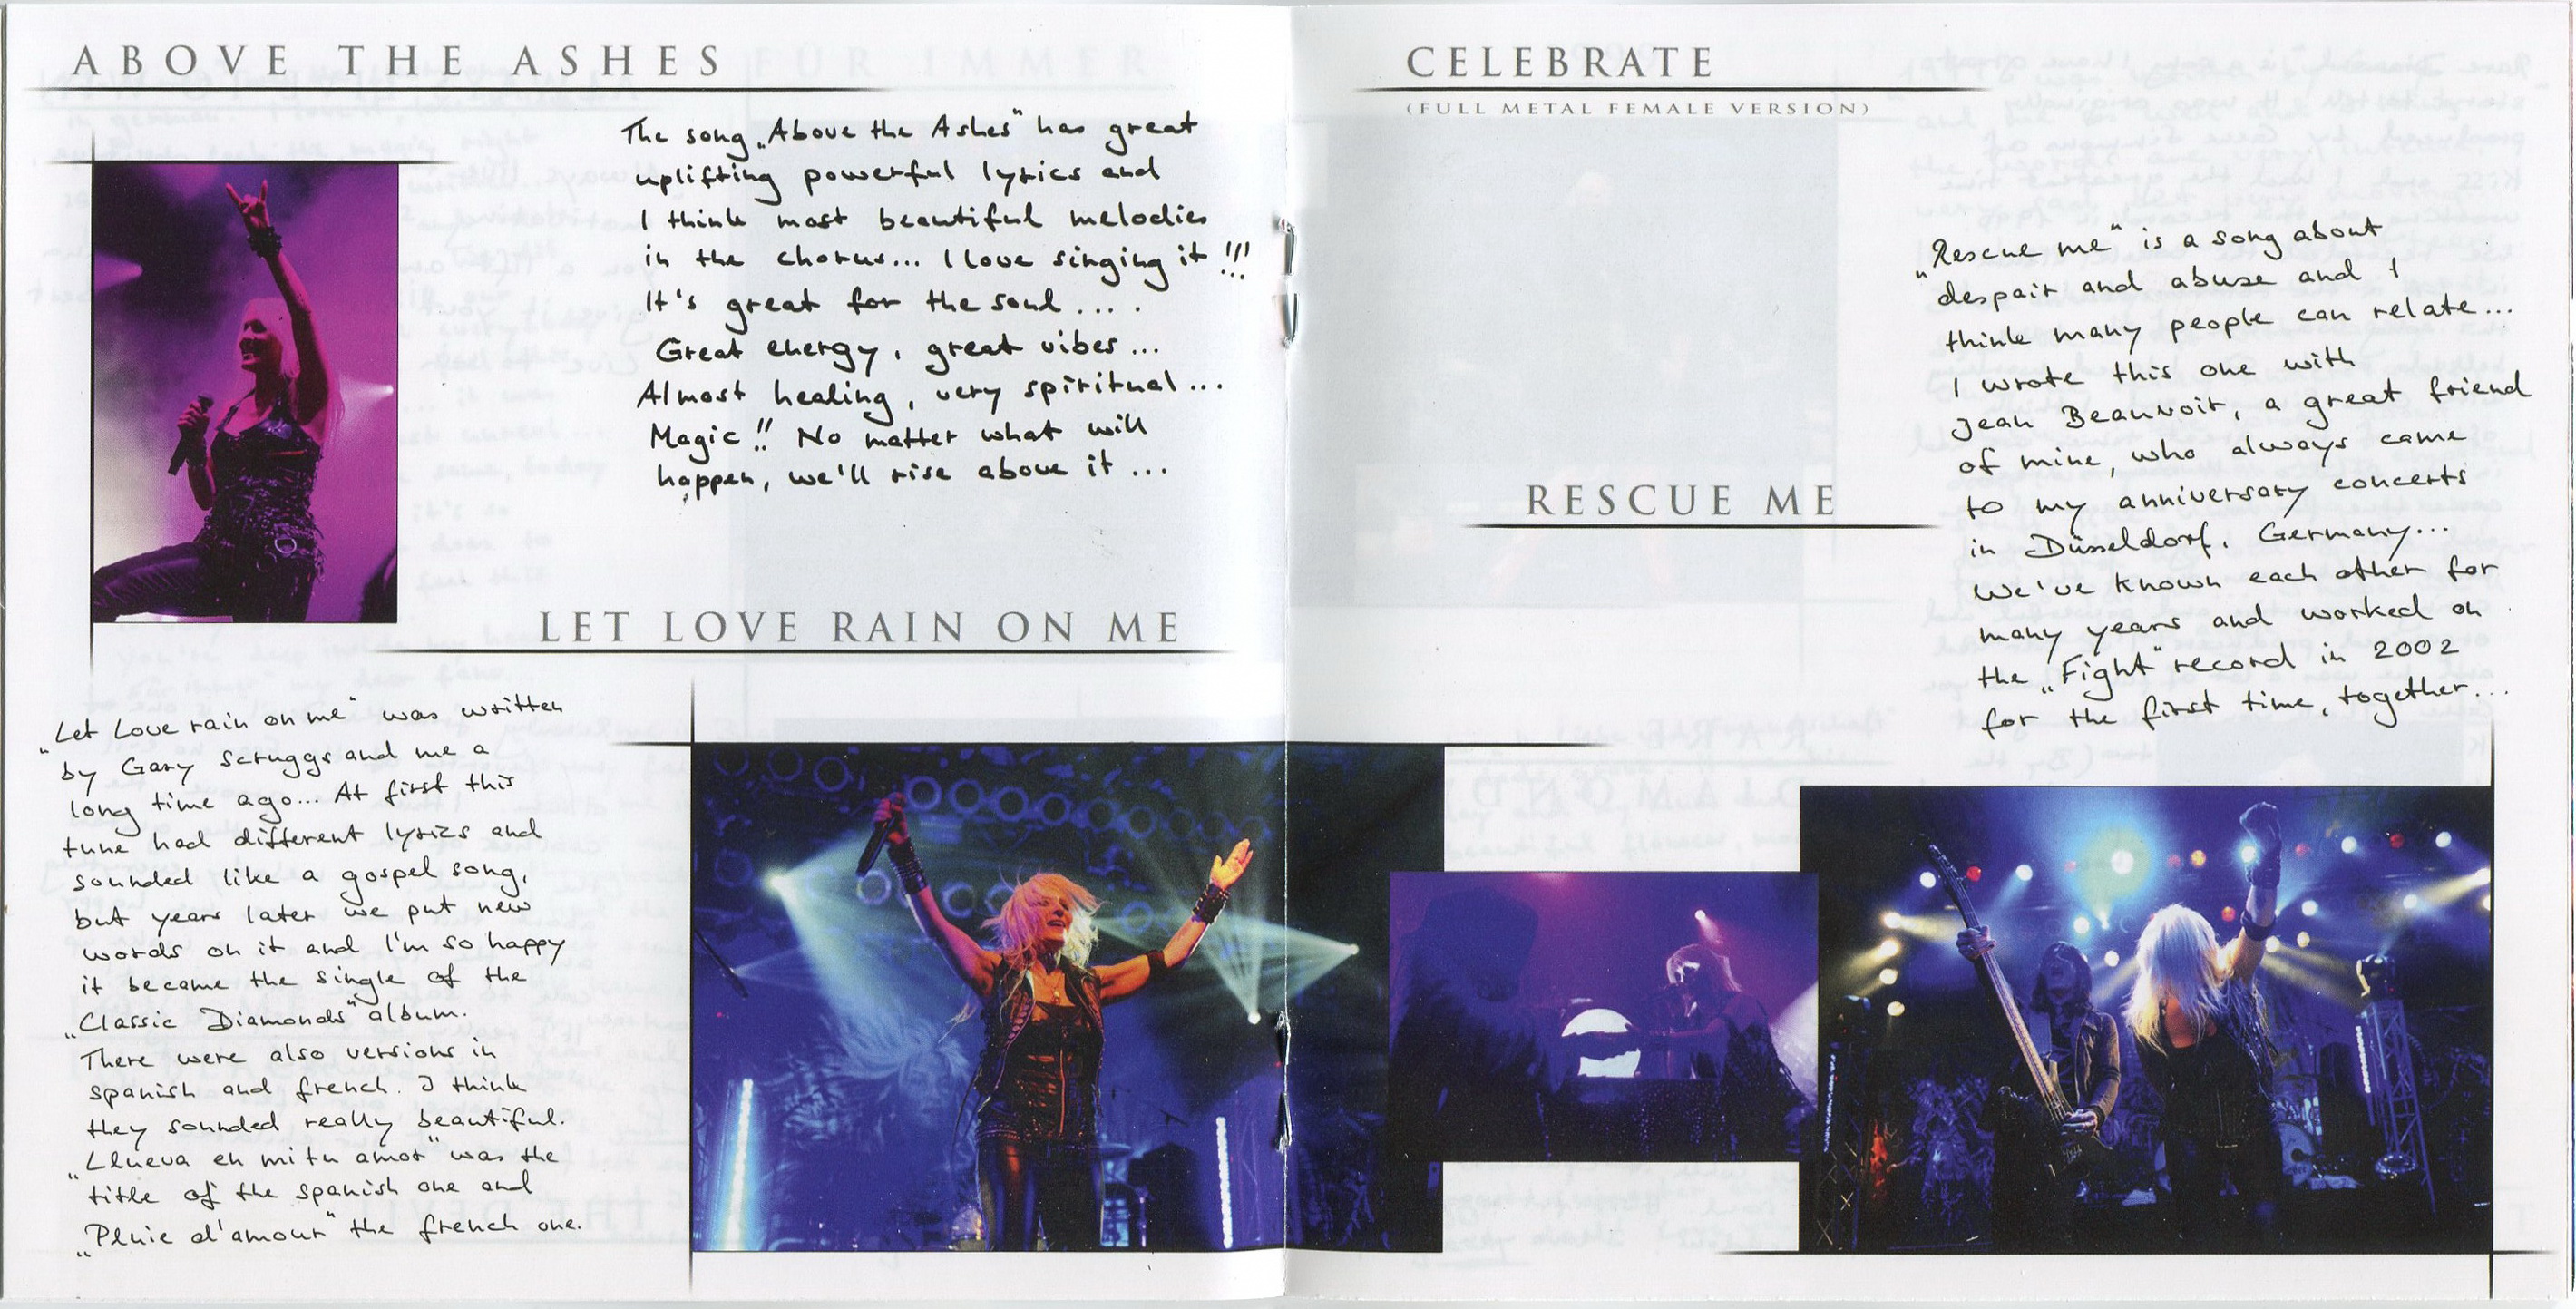 ABOVE THE ASHES
The song „Above the Ashes" has great
uplifting powerful lyrics and
I think most beautiful melodies
in the chorus... I love singing it!!!
It's great for the soul....
Great energy, great vibes...
Almost healing, very spiritual...
Magic!! No matter what will
happen, we'll rise above it...
LET LOVE RAIN ON ME
„Let Love rain on me" was written
by Gary Scruggs and me a
long time ago... At first this
tune had different lyrics and
sounded like a gospel song,
but years later we put new
words on it and I'm so happy
it became the single of the
„Classic Diamonds" album.
There were also versions in
spanish and french. I think
they sounded really beautiful.
„Llueva en mi tu amor" was the
title of the spanish one and
„Pluie d'amour" the french one.
CELEBRATE
(FULL METAL FEMALE VERSION)
RESCUE ME
„Rescue me" is a song about
despair and abuse and I
think many people can relate...
I wrote this one with
Jean Beauvoir, a great friend
of mine, who always came
to my anniversary concerts
in Düsseldorf, Germany...
We've known each other for
many years and worked on
the „Fight" record in 2002
for the first time, together...